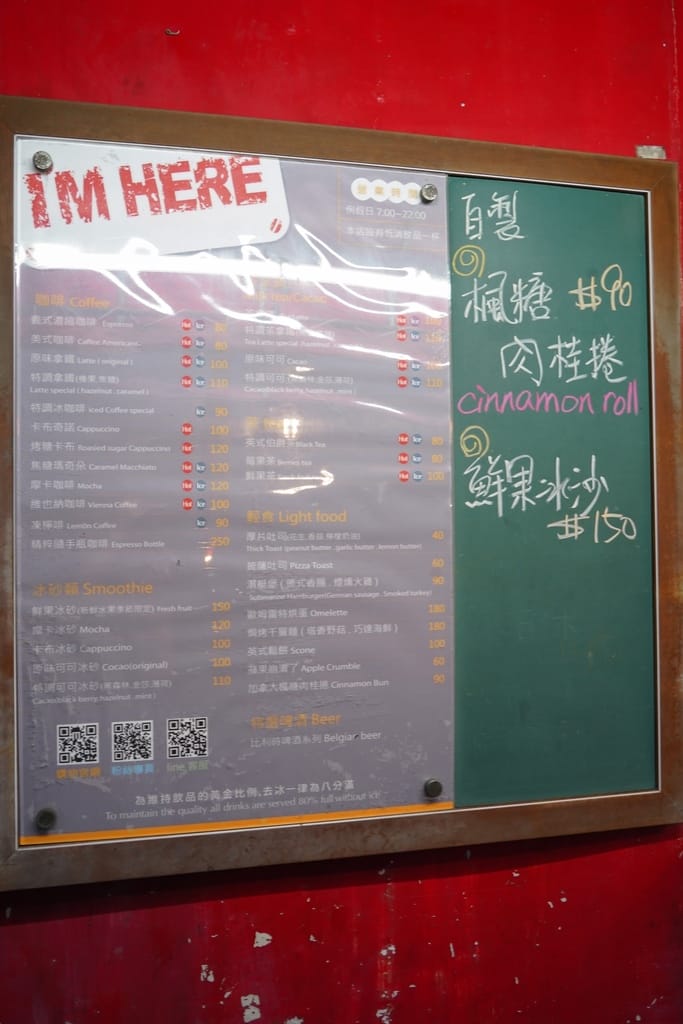 I'M HERE
營業時間
例假日 7:00~22:00
本店設有低消飲品一杯
咖啡 Coffee
義式濃縮咖啡 Espresso Hot Ice 80
美式咖啡 Coffee Americano Hot Ice 80
原味拿鐵 Latte ( original ) Hot Ice 100
特調拿鐵(榛果.焦糖) Hot Ice 110
Latte special ( hazelnut . caramel )
特調冰咖啡 iced Coffee special Ice 90
卡布奇諾 Cappuccino Hot 100
烤糖卡布 Roasted sugar Cappuccino Hot 120
焦糖瑪奇朵 Caramel Macchiato Hot Ice 120
摩卡咖啡 Mocha Hot Ice 120
維也納咖啡 Vienna Coffee Hot Ice 100
凍檸啡 Lemon Coffee Ice 90
精粹隨手瓶咖啡 Espresso Bottle 250
冰砂類 Smoothie
鮮果冰砂(新鮮水果季節限定) Fresh fruit 150
摩卡冰砂 Mocha 120
卡布冰砂 Cappuccino 100
原味可可冰砂 Cocao(original) 100
特調可可冰砂(黑森林.金莎.薄荷) 110
Cacao(black berry.hazelnut . mint )
粉絲專頁 line 客服
Tea/Cacao
Hot Ice
特調茶拿鐵 Hot Ice 110
Tea Latte special
原味可可 Cacao Hot Ice 100
特調可可(黑森林.金莎.薄荷) Hot Ice 110
Cacao(black berry.hazelnut . mint )
英式伯爵茶 Black Tea Hot Ice 80
莓果茶 Berries tea Hot Ice 80
鮮果茶 Hot Ice 100
輕食 Light food
厚片吐司(花生.香蒜.檸檬奶油) 40
Thick Toast (peanut butter . garlic butter . lemon butter)
披薩吐司 Pizza Toast 60
潛艇堡 ( 德式香腸 . 煙燻火雞 ) 90
Submarine Hamburger(German sausage . Smoked turkey)
歐姆雷特烘蛋 Omelette 180
焗烤千層麵 ( 塔香野菇 . 巧達海鮮 ) 180
英式鬆餅 Scone 100
蘋果崩潰了 Apple Crumble 60
加拿大楓糖肉桂捲 Cinnamon Bun 90
啤酒 Beer
比利時啤酒系列 Belgian beer
為維持飲品的黃金比例,去冰一律為八分滿
To maintain the quality all drinks are served 80% full without ice
自製
楓糖 $90
肉桂捲
cinnamon roll
鮮果冰沙
$150